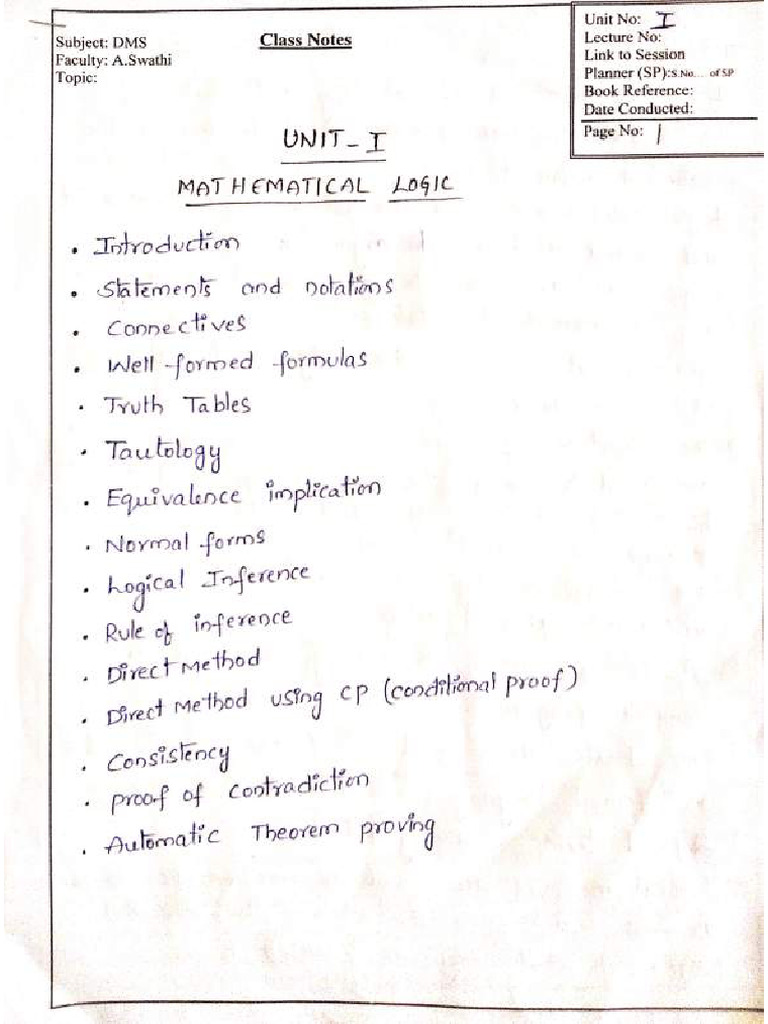 Subject: DMS
Faculty: A.Swathi
Topic:
Class Notes
Unit No: I
Lecture No:
Link to Session
Planner (SP):S.No.... of SP
Book Reference:
Date Conducted:
Page No: 1
UNIT - I
MATHEMATICAL LOGIC
• Introduction
• Statements and notations
• Connectives
• Well-formed formulas
• Truth Tables
• Tautology
• Equivalence implication
• Normal forms
• Logical Inference
• Rule of inference
• Direct Method
• Direct Method using CP (conditional proof)
• Consistency
• proof of contradiction
• Automatic Theorem proving